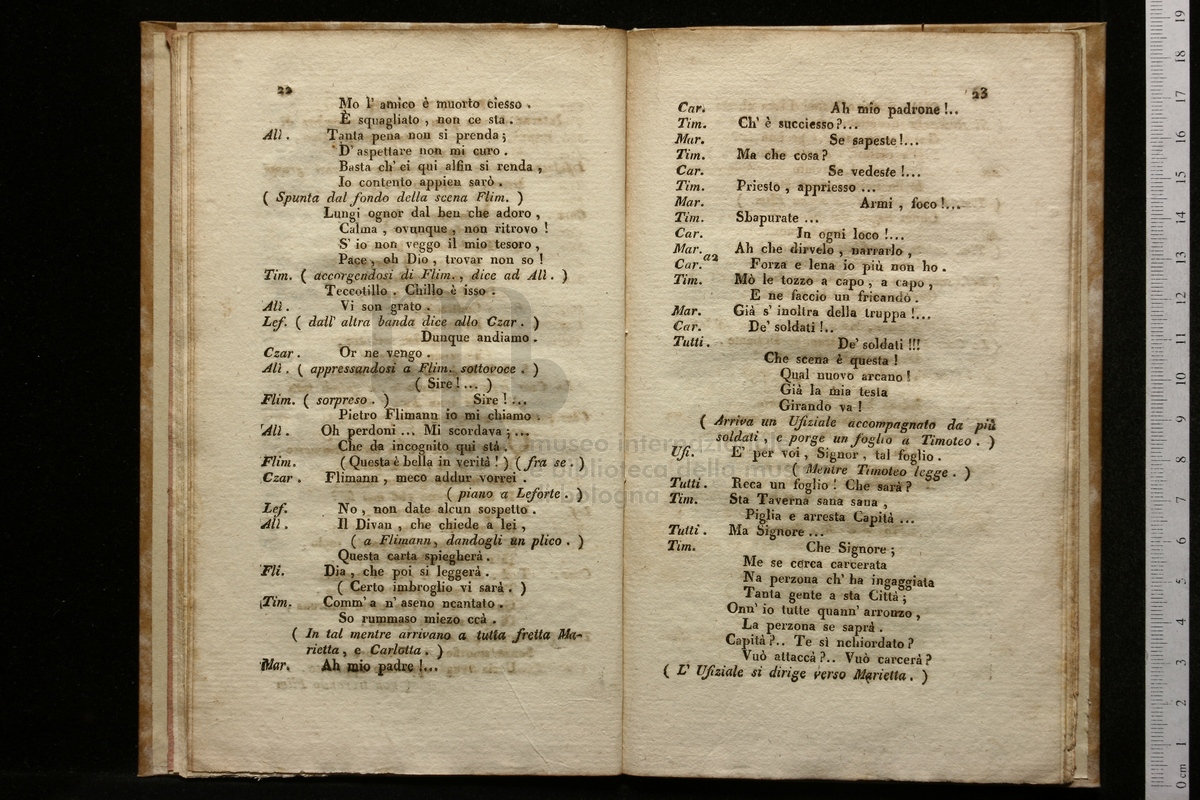 22
Mo l' amico è muorto ciesso .
È squagliato , non ce sta .
Alì . Tanta pena non si prenda ;
D' aspettare non mi curo .
Basta ch' ei qui alfin si renda ,
Io contento appien sarò .
( Spunta dal fondo della scena Flim. )
Lungi ognor dal ben che adoro ,
Calma , ovunque , non ritrovo !
S' io non veggo il mio tesoro ,
Pace , oh Dio , trovar non so !
Tim. ( accorgendosi di Flim. , dice ad Alì . )
Teccotillo . Chillo è isso .
Alì . Vi son grato .
Lef. ( dall' altra banda dice allo Czar . )
Dunque andiamo .
Czar . Or ne vengo .
Alì . ( appressandosi a Flim. sottovoce . )
( Sire ! ... )
Flim. ( sorpreso . ) Sire ! ...
Pietro Flimann io mi chiamo .
Alì . Oh perdoni ... Mi scordava ; ...
Che da incognito qui stà .
Flim. ( Questa è bella in verità ! ) ( fra se . )
Czar . Flimann , meco addur vorrei .
( piano a Leforte . )
Lef. No , non date alcun sospetto .
Alì . Il Divan , che chiede a lei ,
( a Flimann , dandogli un plico . )
Questa carta spiegherà .
Fli. Dia , che poi si leggerà .
( Certo imbroglio vi sarà . )
Tim. Comm' a n' aseno ncantato .
So rummaso miezo ccà .
( In tal mentre arrivano a tutta fretta Ma-
rietta , e Carlotta . )
Mar. Ah mio padre !...
23
Car. Ah mio padrone !..
Tim. Ch' è succiesso ?...
Mar. Se sapeste !...
Tim. Ma che cosa ?
Car. Se vedeste !...
Tim. Priesto , appriesso ...
Mar. Armi , foco !...
Tim. Sbapurate ...
Car. In ogni loco !...
Mar. a2 Ah che dirvelo , narrarlo ,
Car. Forza e lena io più non ho .
Tim. Mò le tozzo a capo , a capo ,
E ne faccio un fricandò .
Mar. Già s' inoltra della truppa !...
Car. De' soldati !..
Tutti . De' soldati !!!
Che scena è questa !
Qual nuovo arcano !
Già la mia testa
Girando va !
( Arriva un Ufiziale accompagnato da più
soldati , e porge un foglio a Timoteo . )
Ufi. E' per voi , Signor , tal foglio .
( Mentre Timoteo legge . )
Tutti . Reca un foglio ! Che sarà ?
Tim. Sta Taverna sana sana ,
Piglia e arresta Capità ...
Tutti . Ma Signore ...
Tim. Che Signore ;
Me se cerca carcerata
Na perzona ch' ha ingaggiata
Tanta gente a sta Città ;
Onn' io tutte quann' arronzo ,
La perzona se saprà .
Capità ?.. Te sì nchiordato ?
Vuò attaccà ?.. Vuò carcerà ?
( L' Ufiziale si dirige verso Marietta . )
museo internazionale
biblioteca della musica
bologna
0 cm 1 2 3 4 5 6 7 8 9 10 11 12 13 14 15 16 17 18 19